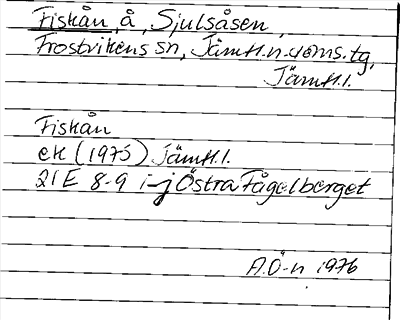 Fiskån, å, Sjulsåsen,
Frostvikens sn, Jämtl.n. doms. tg,
Jämtl.l.
Fiskån
ek (1975) Jämtl.l.
21E 8-9 i-j Östra Fågelberget
A.Ö-n 1976